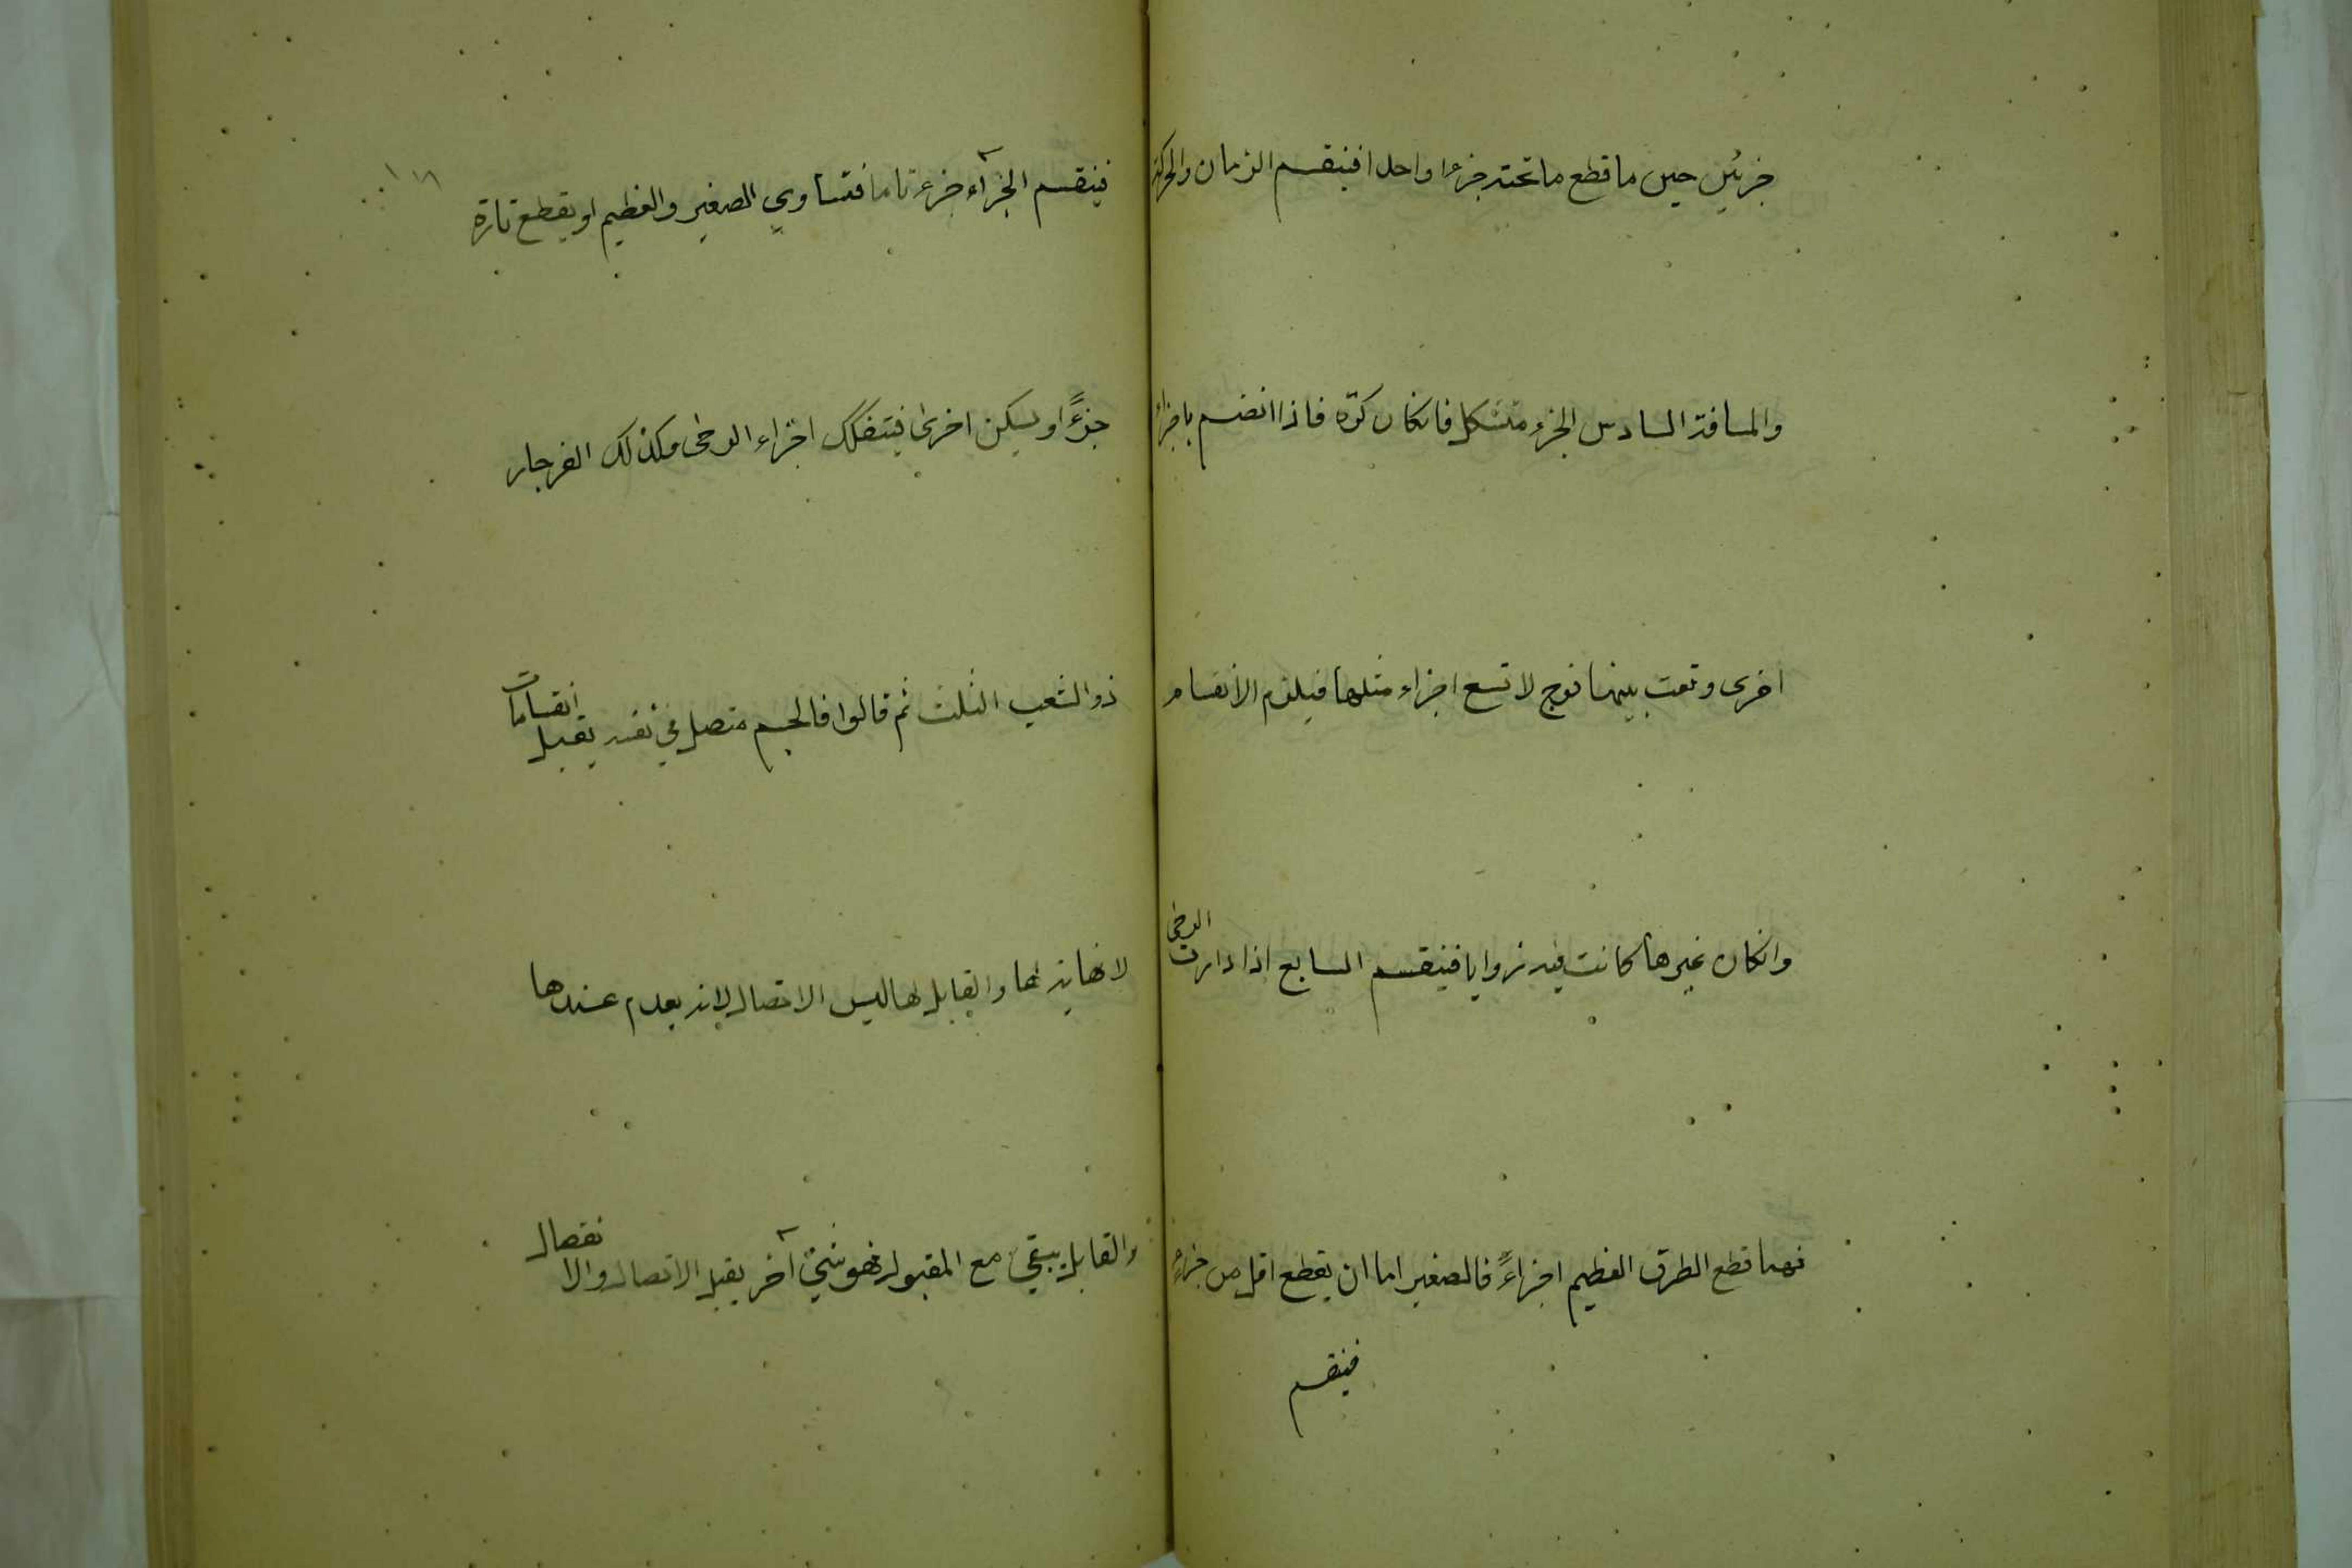 جزئين حين ما قطع ما تحته جزءا واحدا فينقسم الزمان والحركة
والمسافة السادس الجزء متشكل فانكان كرّة فاذا انضم باجزاء
اخرى وقعت بينهما فرج لا تسع اجزاء مثلها فيلزم الانقسام
وانكان غيرها كانت فيه زوايا فينقسم السابع اذا دارت الرحى
فهما قطع الطرق العظيم اجزاءً فالصغير اما ان يقطع اقل من جزءٍ
فينقسم
١٨
فينقسم الجزآء جزء تاما فتساوي الصغير والعظيم او يقطع تارة
جزءً او يسكن اخرى فيتفكك اجزاء الرحى وكذلك الفرجار
ذو الشعب الثلث ثم قالوا فالجسم متصل في نفسه يقبل انقسامات
لا نهاية لها والقابل لها ليس الاتصال لانه يعدم عندها
والقابل يبقي مع المقبول فهو شئ آخر يقبل الاتصال والانفصال